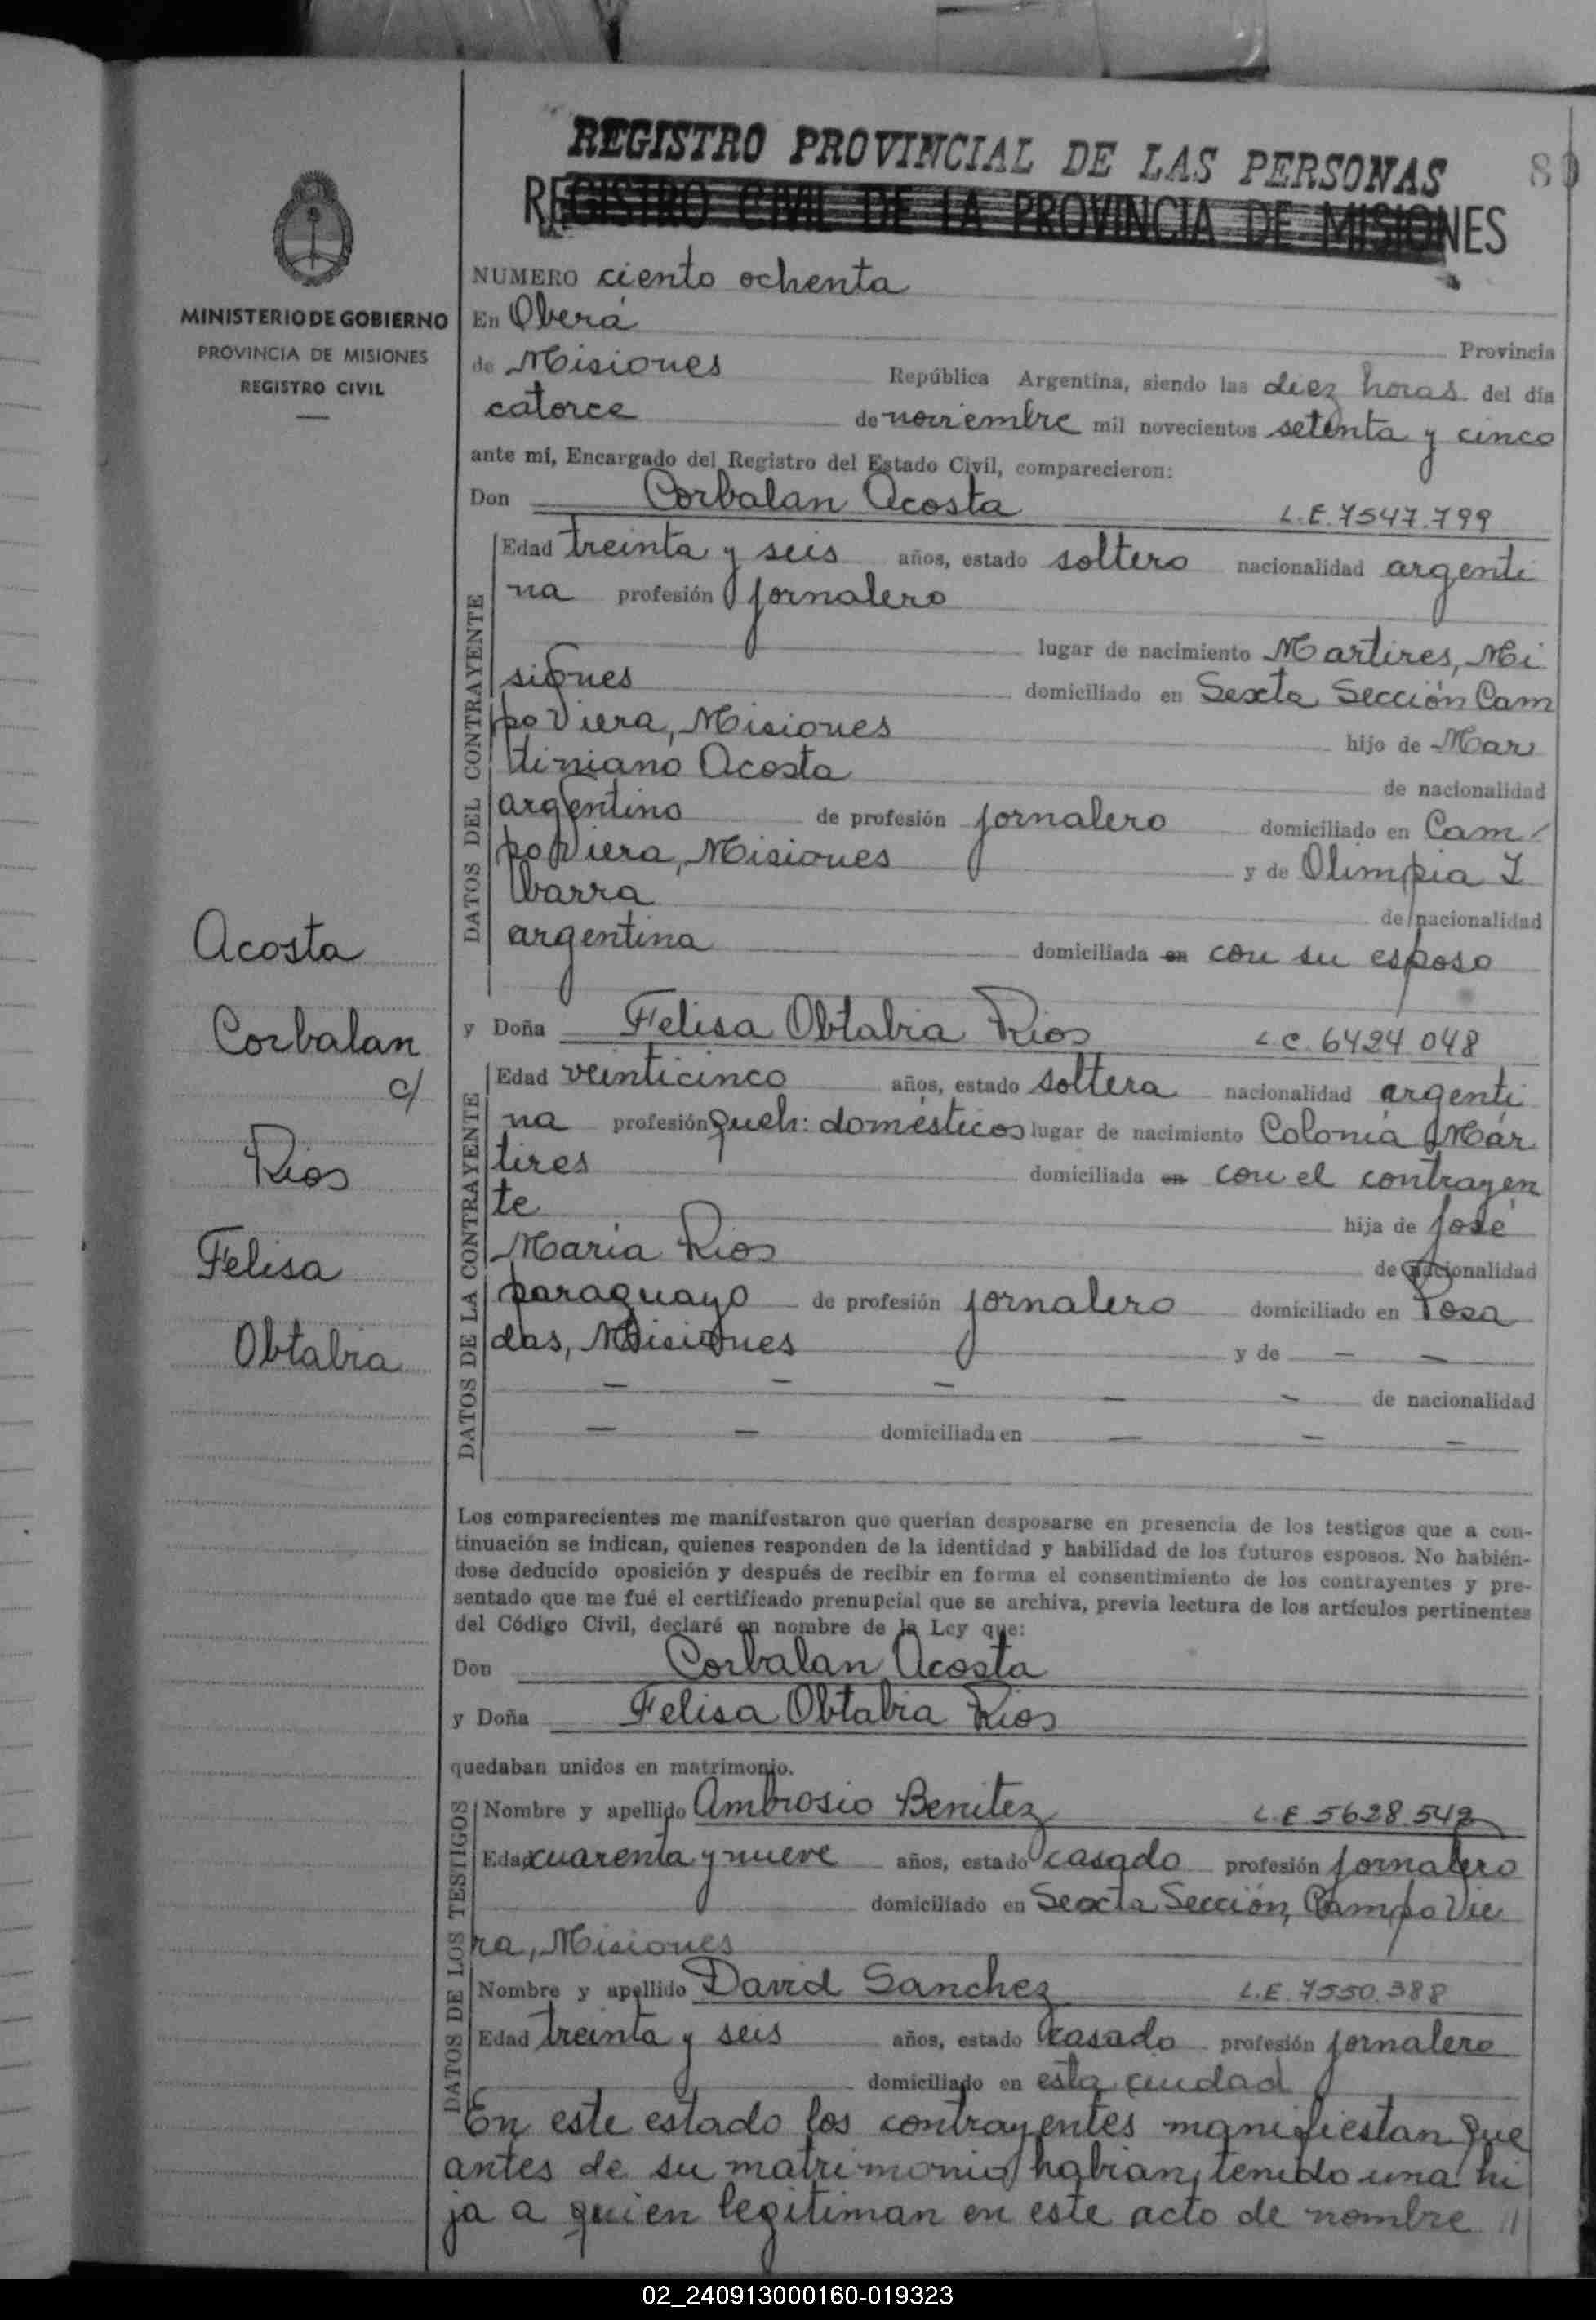 REGISTRO PROVINCIAL DE LAS PERSONAS
80
REGISTRO CIVIL DE LA PROVINCIA DE MISIONES
MINISTERIO DE GOBIERNO
PROVINCIA DE MISIONES
REGISTRO CIVIL
NUMERO ciento ochenta
En Oberá
Provincia
de Misiones República Argentina, siendo las diez horas del día
catorce de noviembre mil novecientos setenta y cinco
ante mí, Encargado del Registro del Estado Civil, comparecieron:
Don Corbalan Acosta L.E. 7547.799
DATOS DEL CONTRAYENTE
Edad treinta y seis años, estado soltero nacionalidad argenti
na profesión jornalero
lugar de nacimiento Martires, Mi
siones domiciliado en Sexta Sección Cam
po Viera, Misiones hijo de Mar
tiniano Acosta de nacionalidad
argentino de profesión jornalero domiciliado en Cam/
po Viera, Misiones y de Olimpia I
barra de nacionalidad
argentina domiciliada en con su esposo
Acosta
Corbalan
c/
Rios
Felisa
Obtabia
y Doña Felisa Obtabia Rios L.C. 6424 048
DATOS DE LA CONTRAYENTE
Edad veinticinco años, estado soltera nacionalidad argenti
na profesión queh: domésticos lugar de nacimiento Colonia Már
tires domiciliada en con el contrayen
te hija de José
María Rios de nacionalidad
paraguayo de profesión jornalero domiciliado en Posa
das, Misiones y de — —
— — — — — de nacionalidad
— — domiciliada en — — —
Los comparecientes me manifestaron que querían desposarse en presencia de los testigos que a con-
tinuación se indican, quienes responden de la identidad y habilidad de los futuros esposos. No habién-
dose deducido oposición y después de recibir en forma el consentimiento de los contrayentes y pre-
sentado que me fué el certificado prenupcial que se archiva, previa lectura de los artículos pertinentes
del Código Civil, declaré en nombre de la Ley que:
Don Corbalan Acosta
y Doña Felisa Obtabia Rios
quedaban unidos en matrimonio.
DATOS DE LOS TESTIGOS
Nombre y apellido Ambrosio Benitez L.E 5628.542
Edad cuarenta y nueve años, estado casado profesión jornalero
domiciliado en Sexta Sección, Campo Vie
ra, Misiones
Nombre y apellido David Sanchez L.E. 7550.388
Edad treinta y seis años, estado casado profesión jornalero
domiciliado en esta ciudad
En este estado los contrayentes manifiestan que
antes de su matrimonio habian tenido una hi
ja a quien legitiman en este acto de nombre //
02_240913000160-019323